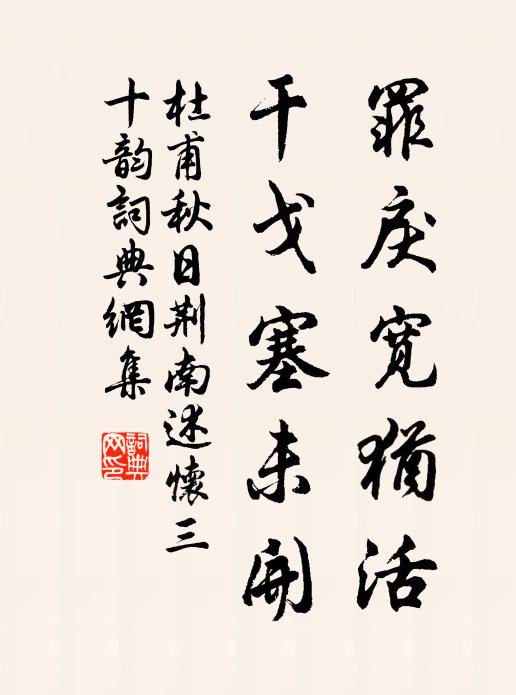 罪戾寬猶活
干戈塞未開
杜甫秋日荆南述懷三
十韵詞典網集
詞典
网印